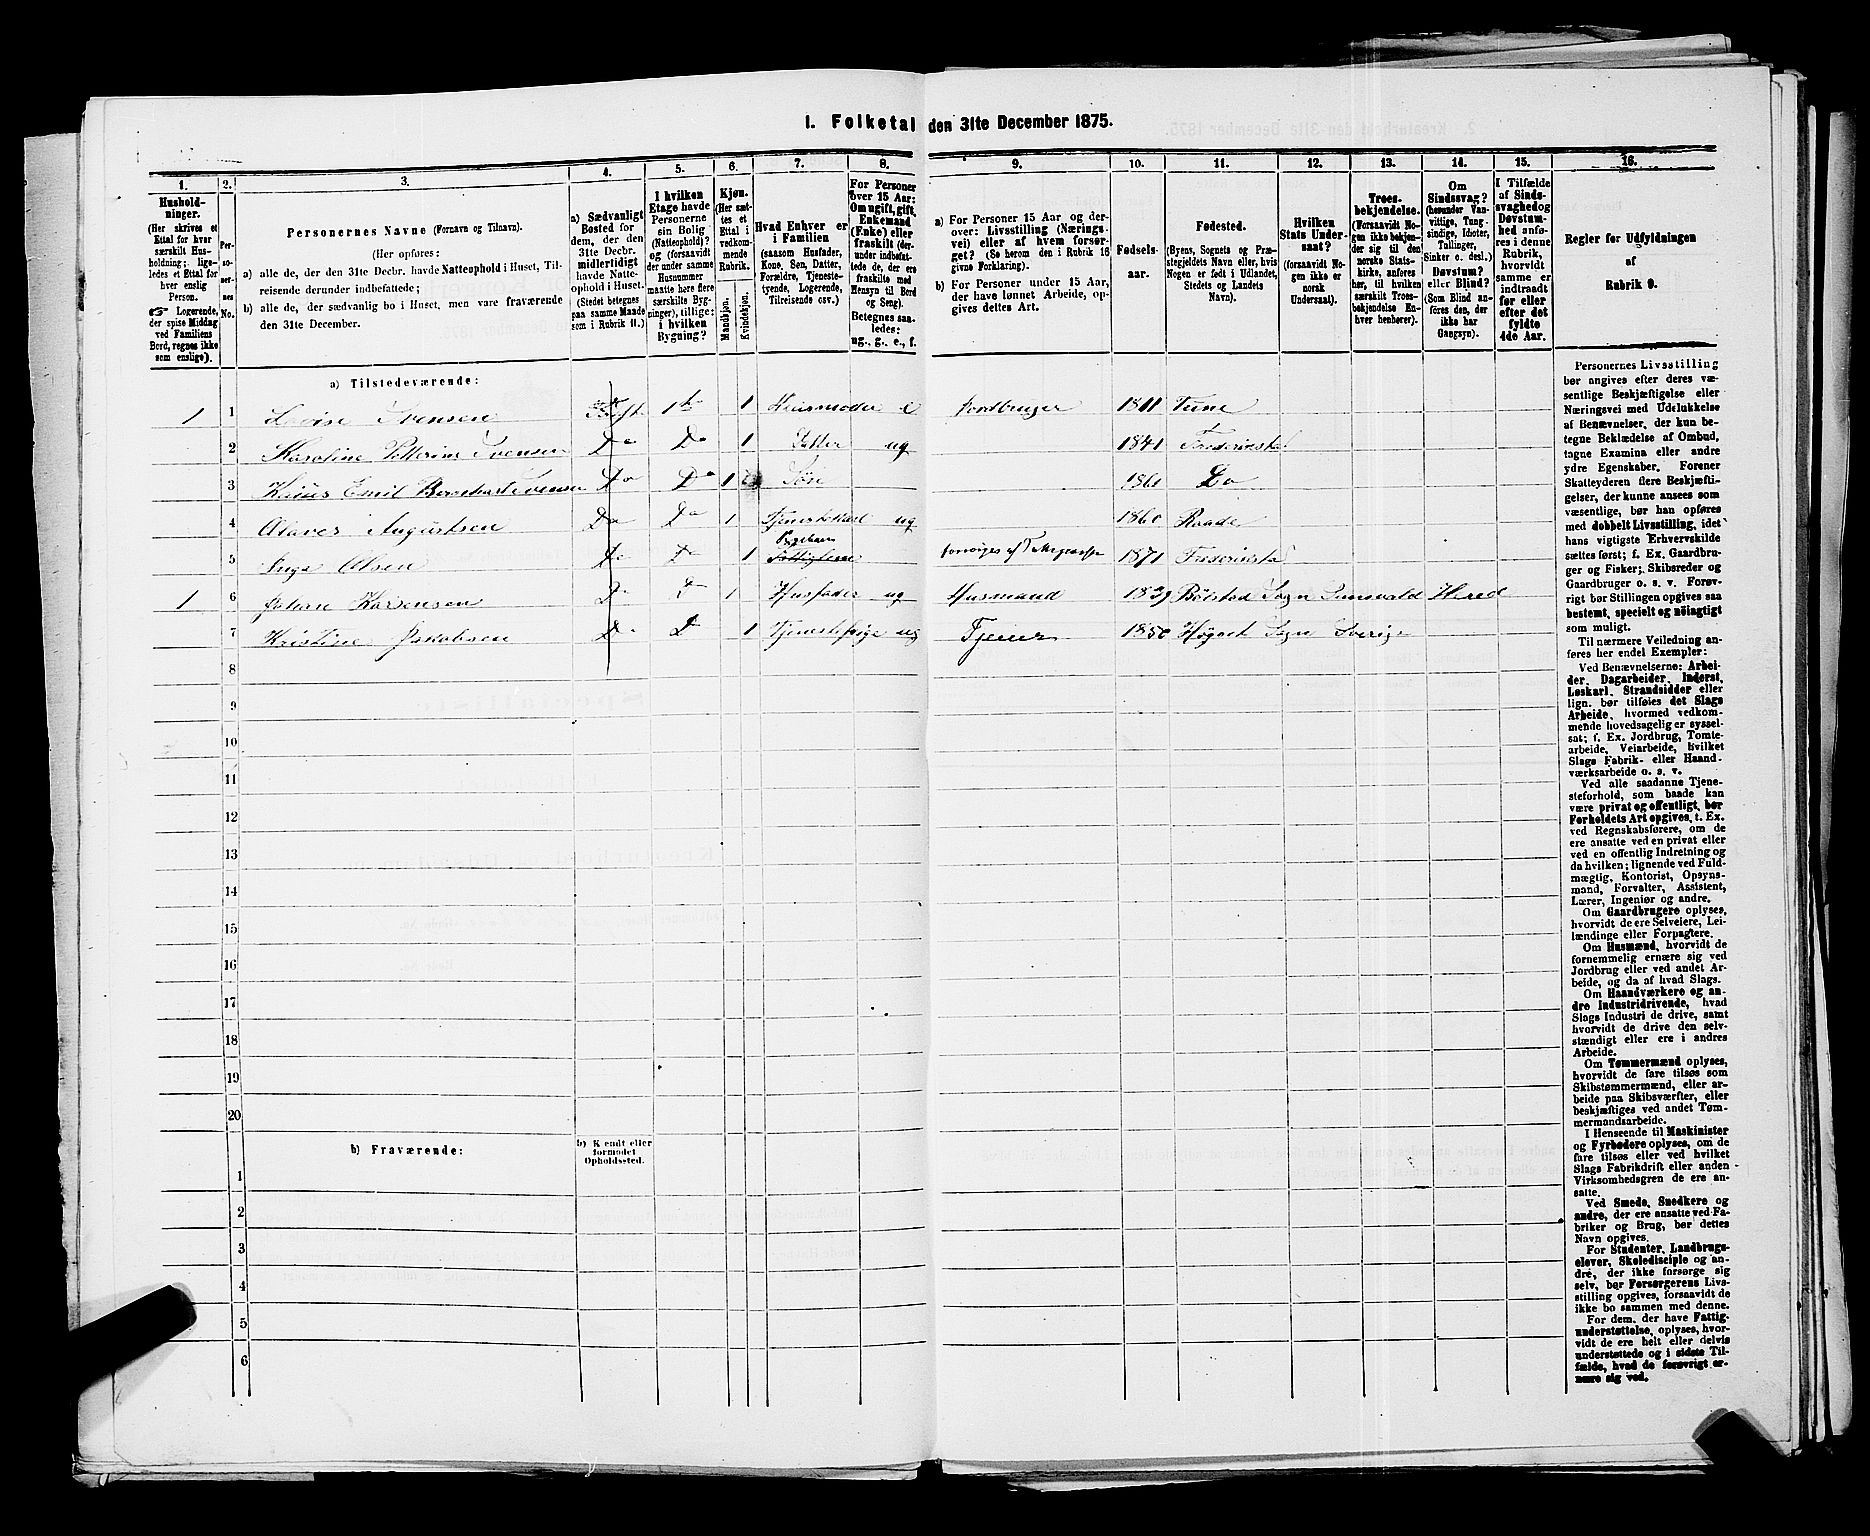 1. Folketal den 31te December 1875.
1. 2. 3. 4. 5. 6. 7. 8. 9. 10. 11. 12. 13. 14. 15. 16.
Husholdninger.
(Her skrives et
Ettal for hver
særskilt Husholdning;
ligeledes et Ettal for
hver enslig
Person.
☞ Logerende,
der spise Middag
ved Familiens
Bord, regnes ikke
som enslige).
Personernes No.
Personernes Navne (Fornavn og Tilnavn).
(Her opføres:
a) alle de, der den 31te Decbr. havde Natteophold i Huset, Tilreisende
derunder indbefattede;
b) alle de, der sædvanlig bo i Huset, men vare fraværende
den 31te December.
a) Sædvanligt
Bosted for
dem, der den
31te Decbr.
midlertidigt
havde Natteophold
i Huset.
(Stedet betegnes
paa samme Maade
som i Rubrik 11.)
I hvilken
Etage havde
Personerne
sin Bolig
(Natteophold)?
og (forsaavidt
der under samme
Husnummer
maatte høre flere
særskilte Bygninger),
tillige:
i hvilken
Bygning?
Kjøn.
(Her sættes
et
Ettal i
vedkommende
Rubrik.
Mandkjøn.
Kvindekjøn.
Hvad Enhver er
i Familien
(saasom Husfader,
Kone, Søn, Datter,
Forældre, Tjenestetyende,
Logerende,
Tilreisende osv.)
For Personer
over 15 Aar:
Om ugift, gift,
Enkemand
(Enke) eller
fraskilt (derunder
indbefattede
de, der ere
fraskilte med
Hensyn til Bord
og Seng).
Betegnes saaledes:
ug., g., e., f.
a) For Personer 15 Aar og derover:
Livsstilling (Næringsvei)
eller af hvem forsørget?
(Se herom den i Rubrik 16
givne Forklaring).
b) For Personer under 15 Aar,
der have lønnet Arbeide, opgives
dettes Art.
Fødselsaar.
Fødested.
(Byens, Sognets og Præstegjeldets
Navn eller, hvis
Nogen er født i Udlandet,
Stedets og Landets
Navn).
Hvilken
Stats Undersaat?
(forsaavidt Nogen
ikke er
norsk
Undersaat).
Troesbekjendelse.
(Forsaavidt Nogen
ikke bekjender
sig til den
norske Statskirke,
anføres
her, til hvilken
særskilt Troesbekjendelse
Enhver
henhører).
Om
Sindssvag?
(herunder Vanvittige,
Tungsindige,
Idioter,
Tallinger,
Sinker o. desl.)
Døvstum?
eller Blind?
(Som Blind anføres
den, der
ikke har
Gangsyn).
I Tilfælde
af Sindssvaghed
og
Døvstumhed
anføres
i denne
Rubrik,
hvorvidt
samme er
indtraadt
før eller
efter det
fyldte
4de Aar.
Regler for Udfyldningen
af
Rubrik 9.
a) Tilstedeværende:
1 1 Lovise Svensen 1 Husmoder e Jordbruger 1811 Tune
2 Karoline Petterine Svensen Do Do 1 Datter ug 1841 Fredrikstad
3 Emil Svensen Do Do 1 Søn 1861 Do
4 Augustsen Do Do 1 Tjenestekarl ug 1860 Raade
5 Inga Olsen Do Do 1 Pleiebarn forsørges af 1871 Fredrikstad
1 6 Johan Do Do 1 Husfader ug Husmand 1839 Sogn Herred
7 Kristine Jakobsen Do Do 1 Tjenestepige ug Tjener 1850 Sogn Sverige
8
9
10
11
12
13
14
15
16
17
18
19
20
b) Fraværende:
b) Kjendt eller
formodet
Opholdssted.
1
2
3
4
5
6
Personernes Livsstilling
bør angives efter deres væsentlige
Beskjæftigelse eller
Næringsvei med Udelukkelse
af Benævnelser, der kun betegne
Beklædelse af Ombud,
tagne Examina eller andre
ydre Egenskaber. Forener
Skatteyderen flere Beskjæftigelser,
der kunne ansees som
væsentlige, bør han opføres
med dobbelt Livsstilling, idet
hans vigtigste Erhvervskilde
sættes først; f. Ex. Gaardbruger
og Fisker; Skibsreder og
Gaardbruger o. s. v. Forøvrigt
bør Stillingen opgives saa
bestemt, specielt og nøiagtigt
som muligt.
Til nærmere Veiledning anføres
her endel Exempler:
Ved Benævnelserne: Arbeider,
Dagarbeider, Inderst,
Løskarl, Strandsidder eller
lign. bør tilføies det Slags
Arbeide, hvormed vedkommende
hovedsagelig er sysselsat;
f. Ex. Jordbrug, Tomtearbeide,
Veiarbeide, hvilket
Slags Fabrik- eller Haandværksarbeide
o. s. v.
Ved alle saadanne Tjenesteforhold,
som baade kan
være privat og offentligt, bør
Forholdets Art opgives, t. Ex.
ved Regnskabsførere, om de
ere ansatte ved en privat eller
ved en offentlig Indretning og
da hvilken; lignende ved Fuldmægtig,
Kontorist, Opsynsmand,
Forvalter, Assistent,
Lærer, Ingeniør og andre.
Om Gaardbrugere oplyses,
hvorvidt de ere Selveiere, Leilændinge
eller Forpagtere.
Om Husmænd, hvorvidt de
fornemmelig ernære sig ved
Jordbrug eller ved andet Arbeide,
og da af hvad Slags.
Om Haandværkere og andre
Industridrivende, hvad
Slags Industri de drive, samt
hvorvidt de drive den selvstændigt
eller ere i andres
Arbeide.
Om Tømmermænd oplyses,
hvorvidt de fare tilsøs som
Skibstømmermænd, eller arbeide
paa Skibsværfter, eller
beskjæftiges ved andet Tømmermandsarbeide.
I Henseende til Maskinister
og Fyrbødere oplyses, om de
fare tilsøs eller ved hvilket
Slags Fabrikdrift eller anden
Virksomhedsgren de ere ansatte.
Ved Smede, Snedkere og
andre, der ere ansatte ved Fabriker
og Brug, bør dettes
Navn opgives.
For Studenter, Landbrugselever,
Skoledisciple og andre,
der ikke forsørge sig
selv, bør Forsørgerens Livsstilling
opgives, forsaavidt de
ikke bo sammen med denne.
For dem, der have Fattigunderstøttelse,
oplyses, hvorvidt
de ere helt eller delvis
understøttede og i sidste Tilfælde,
hvad de forøvrigt ernære
sig ved.